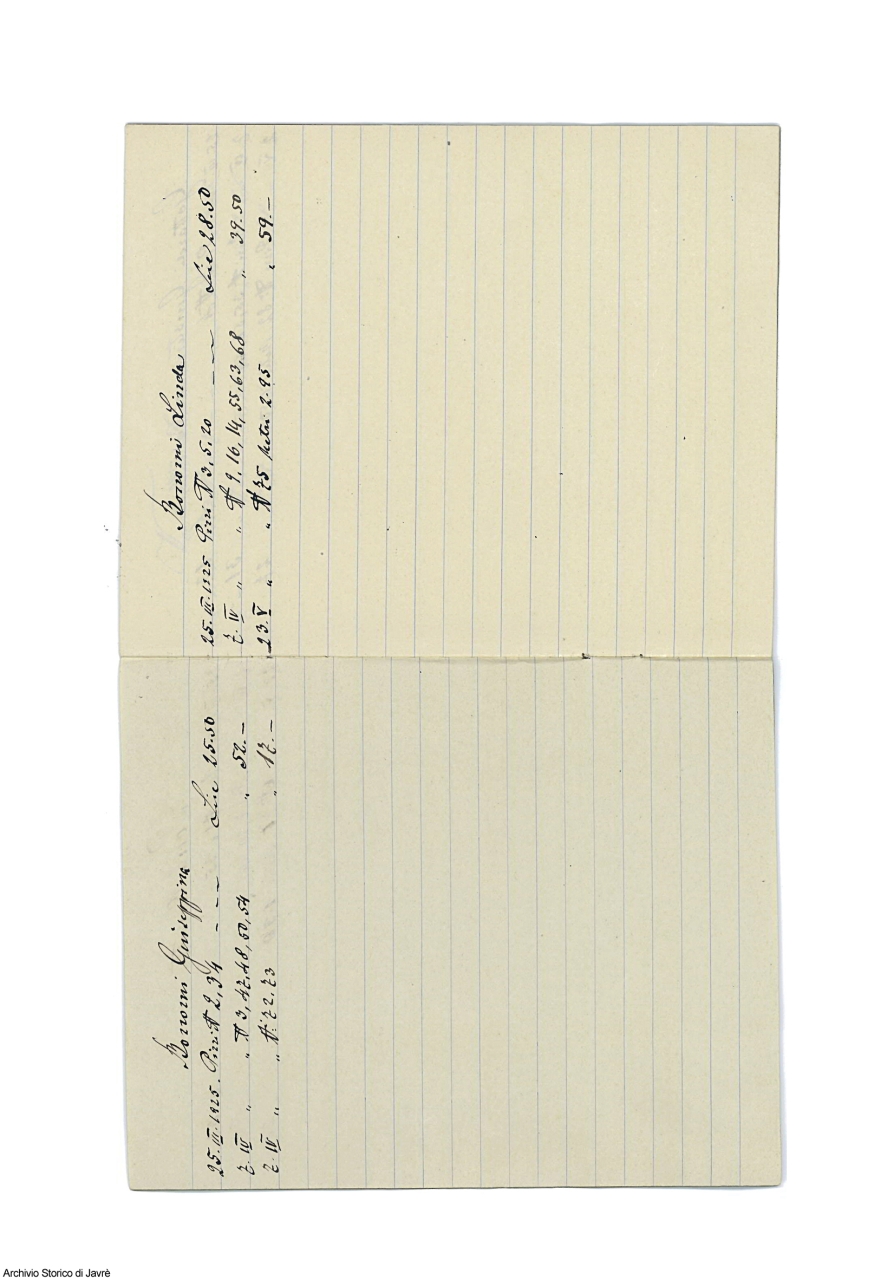 Bonomi Giuseppina
25.III.1925. Pizzi N 2, 34 - - - Lire 25.50
7. IV " " N 3, 47, 48, 50, 54 " 57.-
7. IV " " N. 72.73 " 17.-
Bonomi Linda
25.III.1925 Pizzi N 3, 5, 20 - - - Lire 28.50
7. IV " " N 9, 16, 14, 55, 63, 68 " 39.50
23. V " " N 75 metri 2.95 " 59.-
Archivio Storico di Javrè